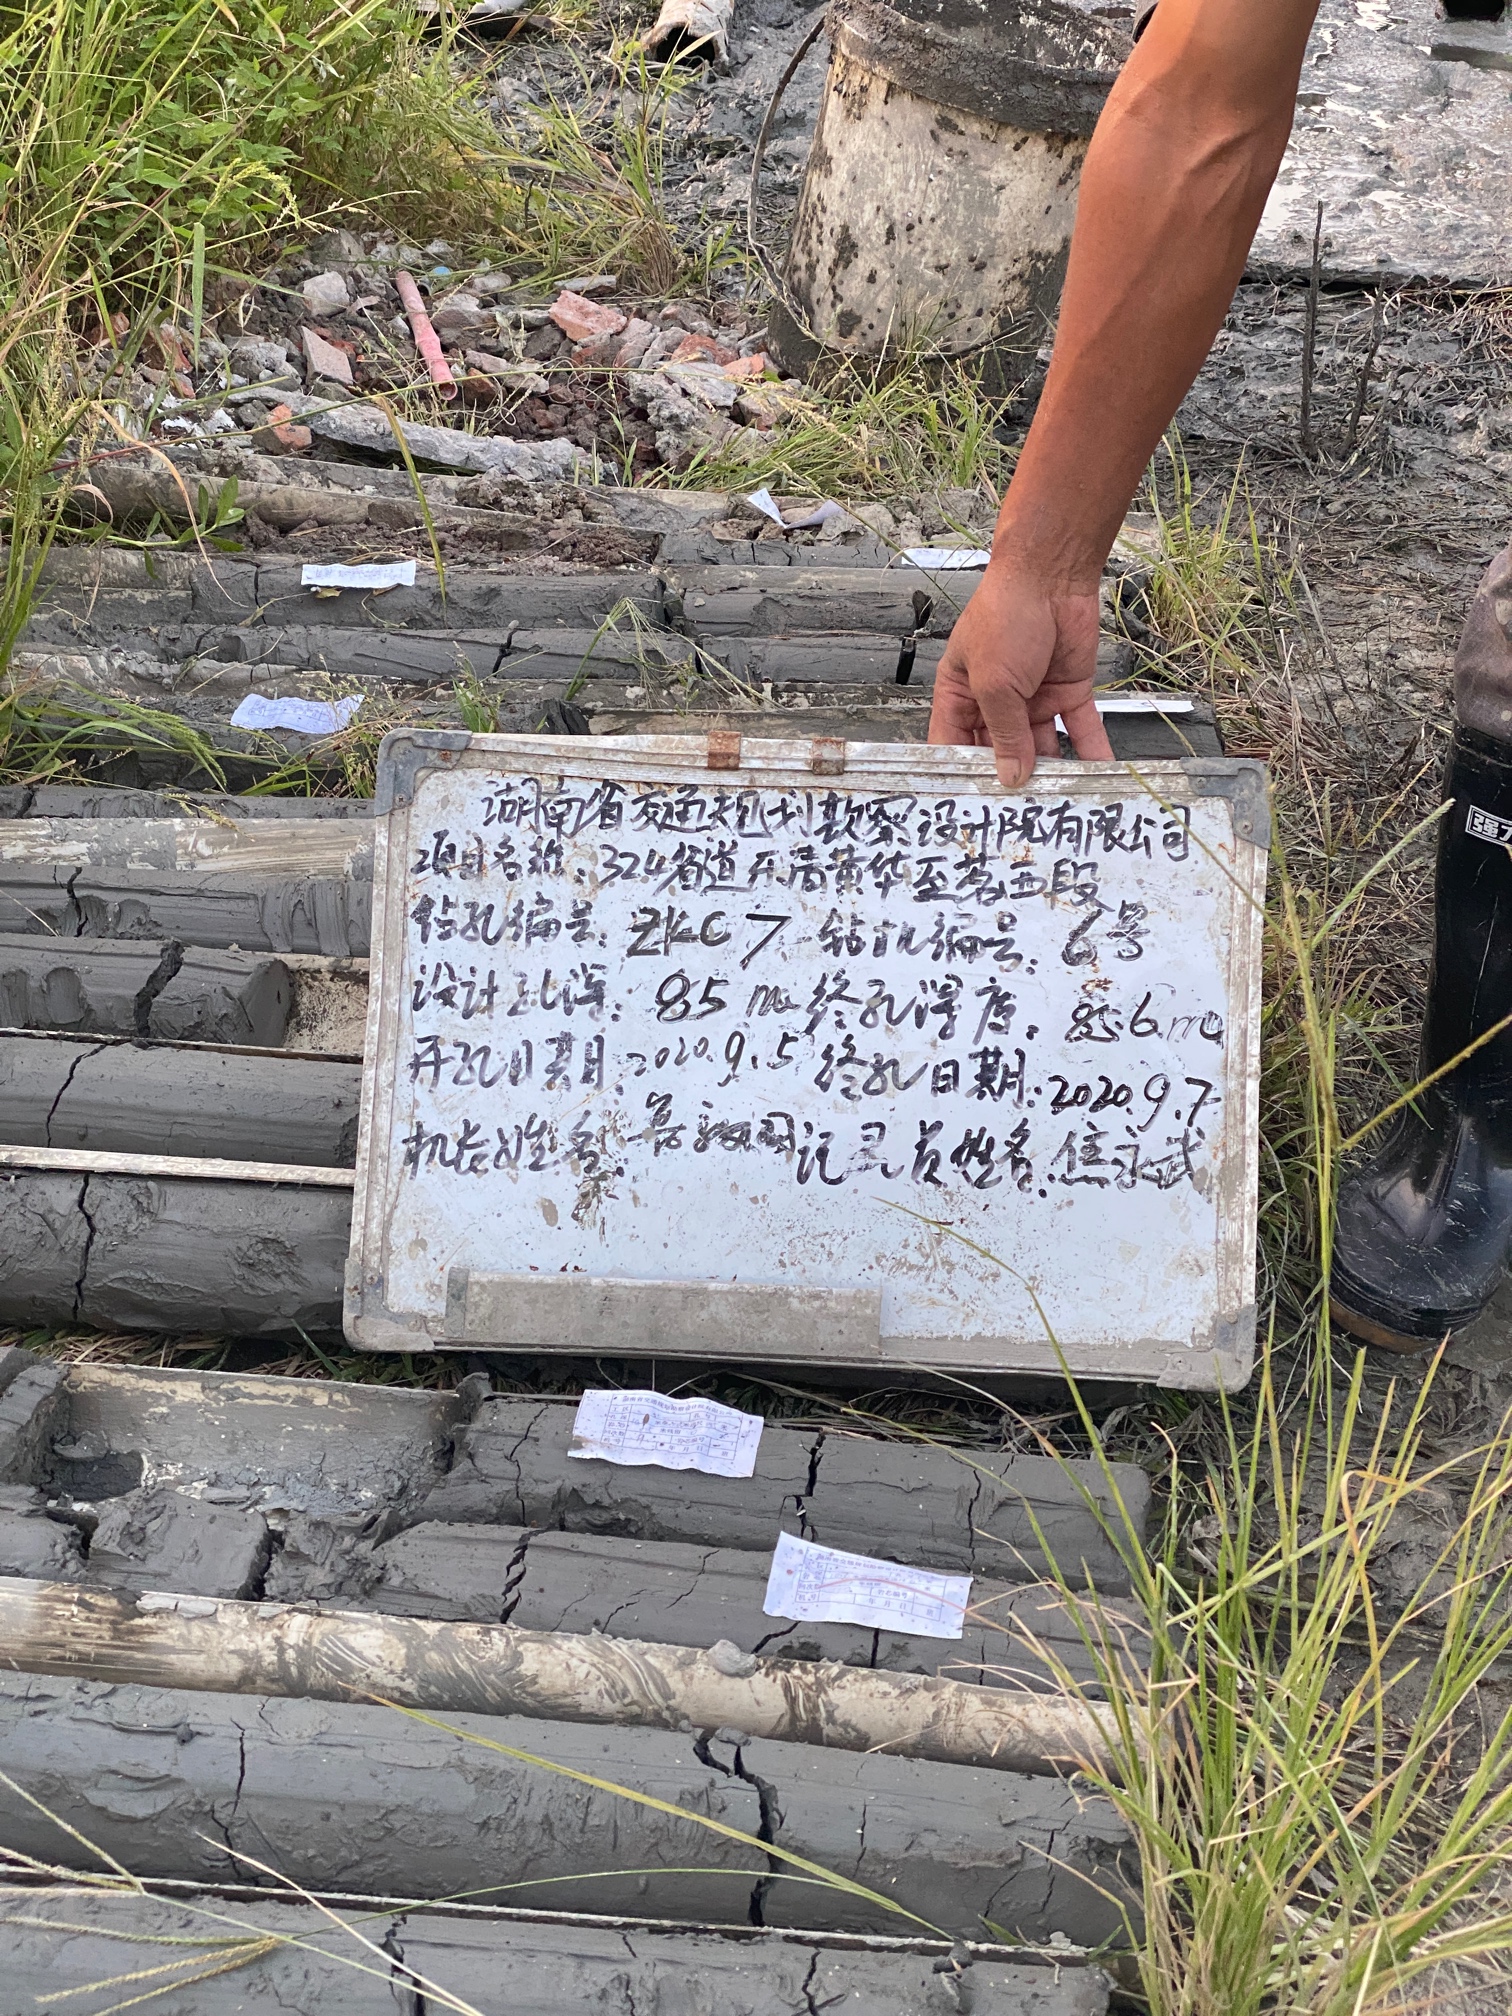 湖南省交通规划勘察设计院有限公司
项目名称：324省道乐清黄华至翁西段
钻孔编号：ZKC7 钻机编号：6号
设计孔深：85m 终孔深度：85.6m
开孔日期：2020.9.5 终孔日期：2020.9.7
机长姓名： 记录员姓名：焦永武
强